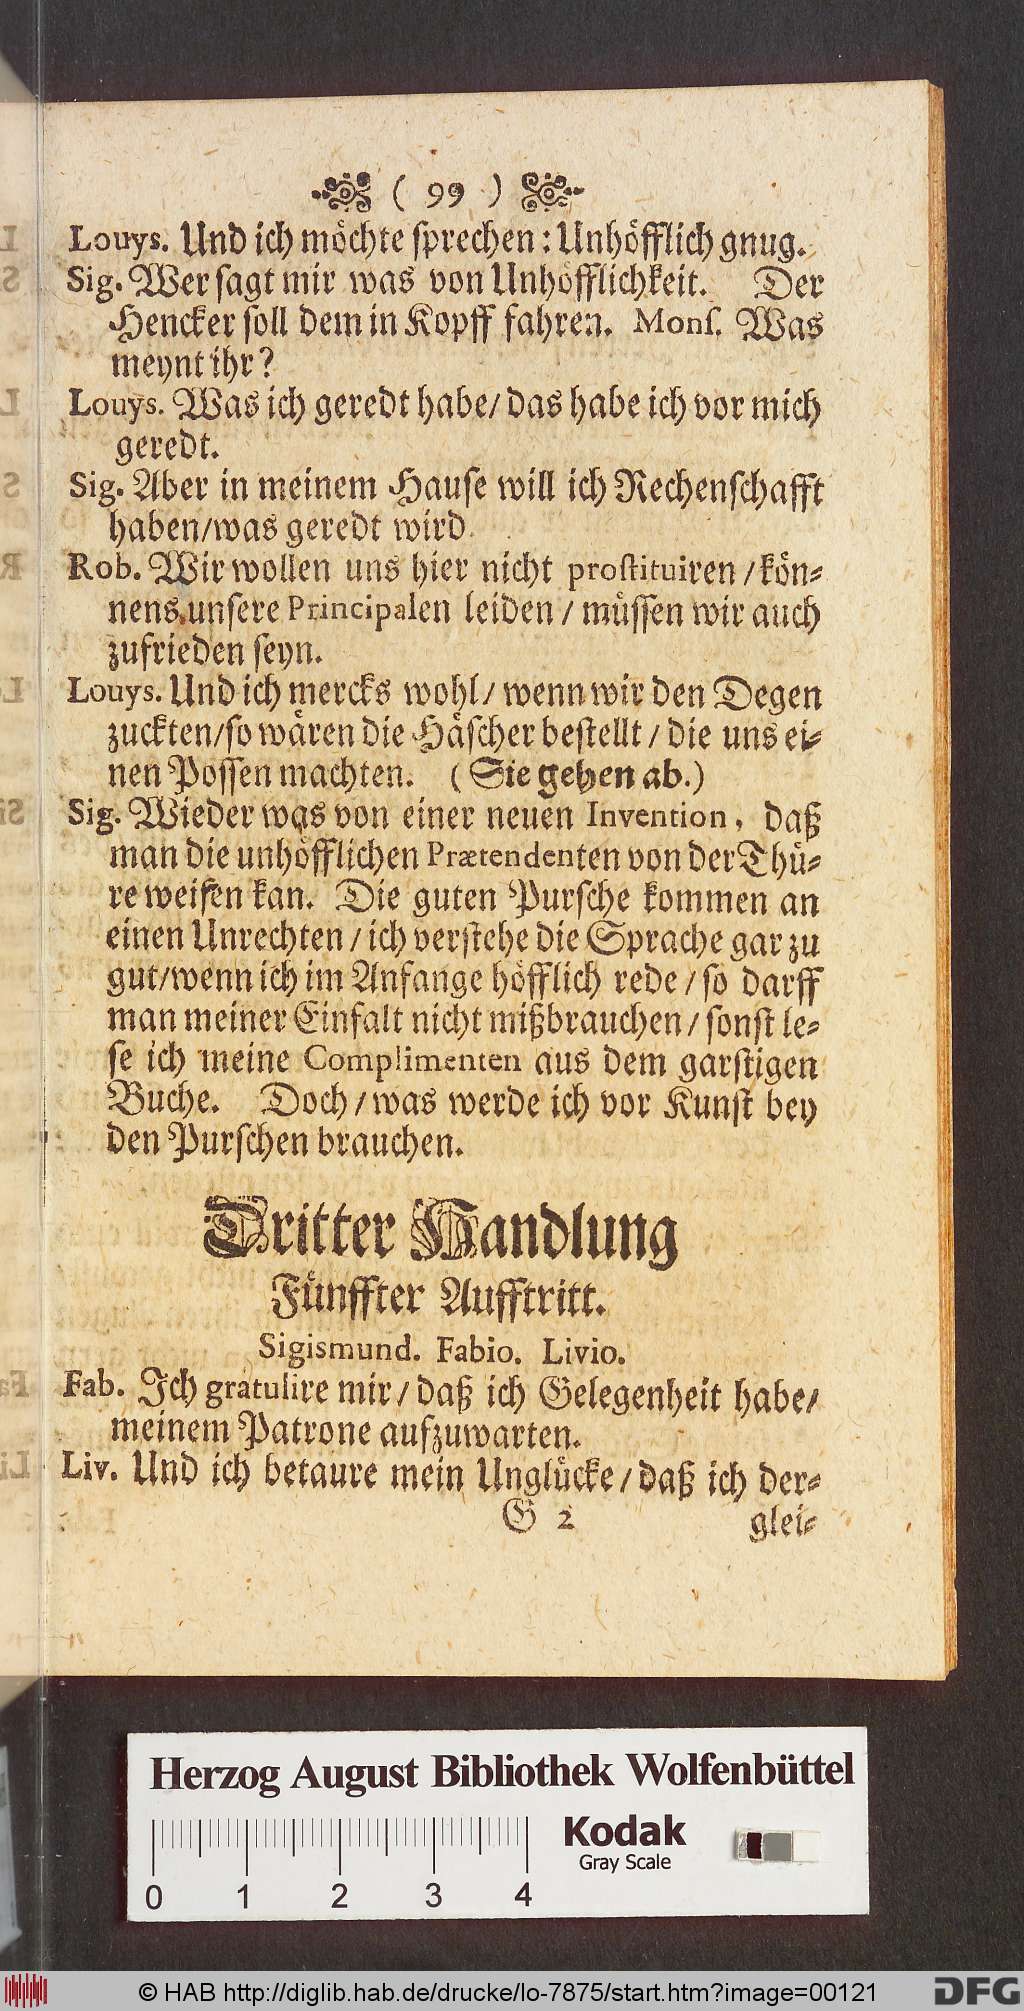 ( 99 )
Louys. Und ich möchte sprechen: Unhöfflich gnug.
Sig. Wer sagt mir was von Unhöfflichkeit. Der
Hencker soll dem in Kopff fahren. Mons. Was
meynt ihr?
Louys. Was ich geredt habe/ das habe ich vor mich
geredt.
Sig. Aber in meinem Hause will ich Rechenschafft
haben/was geredt wird.
Rob. Wir wollen uns hier nicht prostituiren / kön-
nens unsere Principalen leiden / müssen wir auch
zufrieden seyn.
Louys. Und ich mercks wohl/ wenn wir den Degen
zuckten/so wären die Häscher bestellt / die uns ei-
nen Possen machten. (Sie gehen ab.)
Sig. Wieder was von einer neuen Invention, daß
man die unhöfflichen Prætendenten von der Thü-
re weisen kan. Die guten Pursche kommen an
einen Unrechten / ich verstehe die Sprache gar zu
gut/wenn ich im Anfange höfflich rede / so darff
man meiner Einfalt nicht mißbrauchen / sonst le-
se ich meine Complimenten aus dem garstigen
Buche. Doch / was werde ich vor Kunst bey
den Purschen brauchen.
Dritter Handlung
Fünffter Aufftritt.
Sigismund. Fabio. Livio.
Fab. Ich gratulire mir / daß ich Gelegenheit habe/
meinem Patrone aufzuwarten.
Liv. Und ich betaure mein Unglücke / daß ich der-
G 2 glei-
Herzog August Bibliothek Wolfenbüttel
Kodak
Gray Scale
0 1 2 3 4
© HAB http://diglib.hab.de/drucke/lo-7875/start.htm?image=00121
DFG